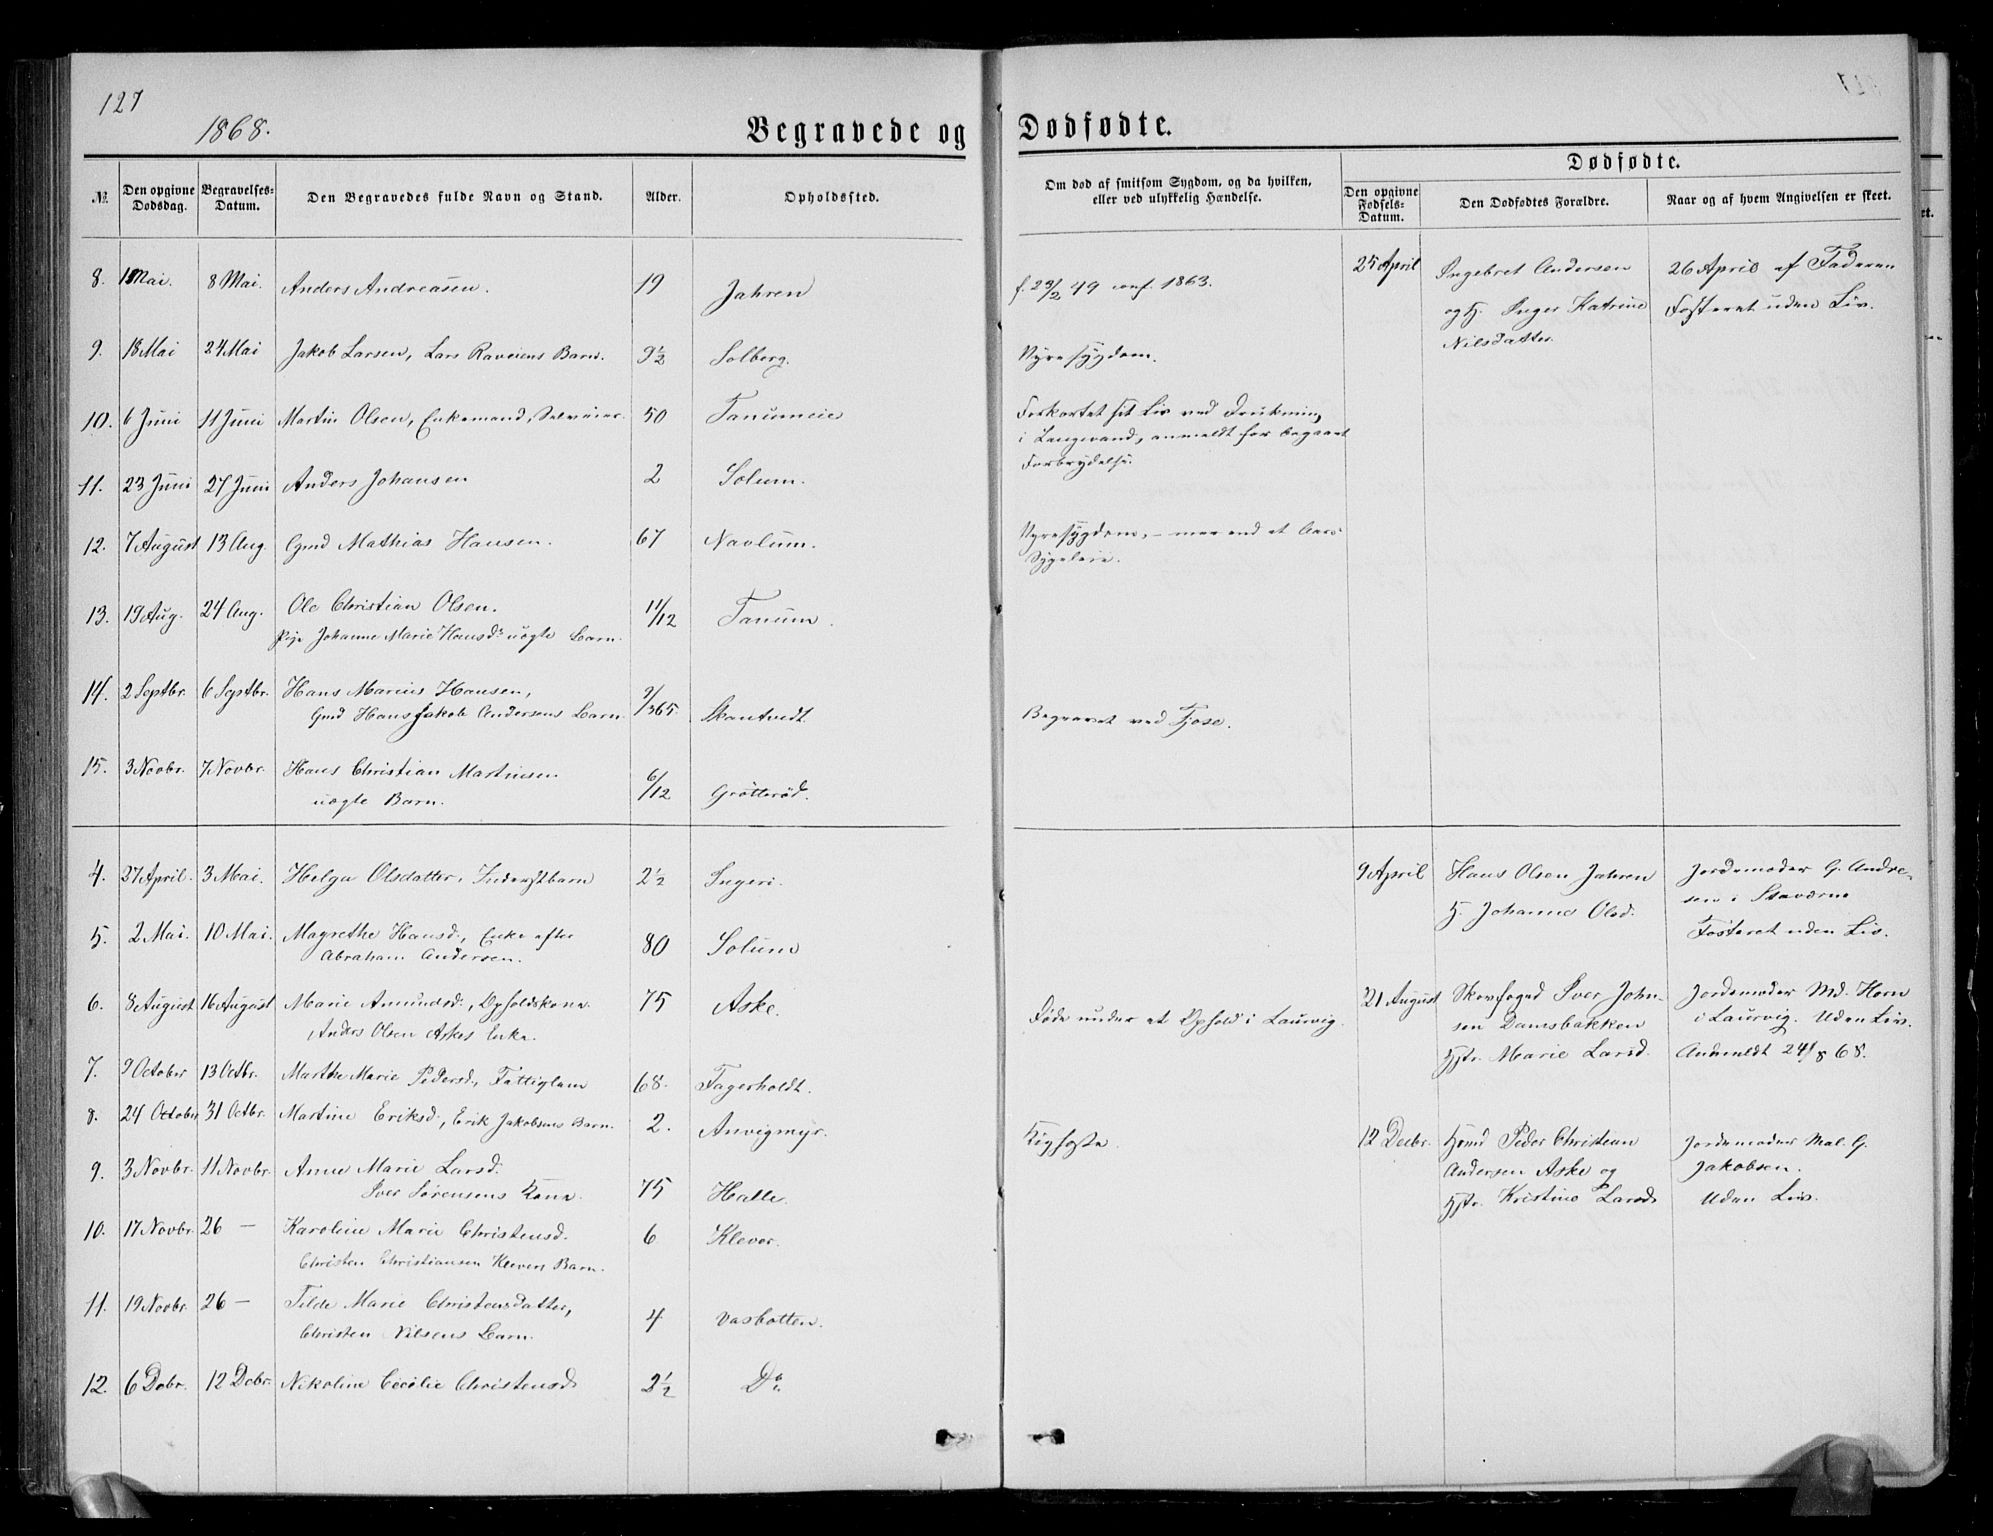 127
1868.
Begravede og Dødfødte.
Dødfødte.
№
Den opgivne Dødsdag.
Begravelses-Datum.
Den Begravedes fulde Navn og Stand.
Alder.
Opholdssted.
Om død af smitsom Sygdom, og da hvilken,
eller ved ulykkelig Hændelse.
Den opgivne Fødsels-Datum.
Den Dødfødtes Forældre.
Naar og af hvem Angivelsen er skeet.
8. 1 Mai. 8 Mai. Anders Andreasen. 19 Jahren f. 23/2 49 conf. 1863.
9. 18 Mai 24 Mai Jakob Larsen, Lars Raveiens Barn. 9½ Solberg. Nyresygdom.
10. 6 Juni 11 Juni Martin Olsen, Enkemand, Selveier. 50 Tanumeie Forkortet sit Liv ved Drukning
i Langevand, anmeldt for begaaet
Forbrydelse.
11. 23 Juni 27 Juni Anders Johansen 2 Solum.
12. 7 August 13 Aug. Gmd Mathias Hansen. 67 Navlum. Nyresygdom, - mer end et Aars
Sygeleie.
13. 19 Aug. 24 Aug. Ole Christian Olsen. 11/12 Tanum.
Pige Johanne Marie Hansd. uægte Barn.
14. 2 Septbr. 6 Septbr. Hans Marius Hansen, 9/365 Skantvedt Begravet ved Tjose.
Gmd Hans Jakob Andersens Barn.
15. 3 Novbr. 7 Novbr. Hans Christian Martinsen 6/12 Grøtterød.
uægte Barn.
4. 27 April. 3 Mai. Helga Olsdatter, Inderstbarn 2½ Ingeri.
5. 2 Mai. 10 Mai. Magrethe Hansd., Enke efter 80 Solum
Abraham Andersen.
6. 8 August 16 August Marie Amundsd., Opholdskone 75 Aske.
Anders Olsen Askes Enke.
Døde under et Ophold i Laurvig.
7. 9 October 13 Octbr. Marthe Marie Pedersd., Fattiglem 68. Fagerholdt.
8. 24 October 31 Octbr. Martine Eriksd., Erik Jakobsens Barn. 2. Anvigmyr. Kighoste.
9. 3 Novbr. 11 Novbr. Anne Marie Larsd. 75 Halle.
Iver Sørensens Kone.
10. 17 Novbr. 26 — Karoline Marie Christensd. 6 Klever.
Christen Christiansen Klevers Barn.
11. 19 Novbr. 26 — Tilda Marie Christensdatter, 4 Vasbotten.
Christen Nilsens Barn.
12. 6 Debr. 12 Debr. Nikoline Cecilie Christensd. 2½ Do.
25 April Ingebret Andersen 26 April af Faderen
og H. Inger Katrine Fosteret uden Liv.
Nilsdatter
9 April Hans Olsen Jahren Jordemoder G. Andre-
H. Johanne Olsd. sen i Staværne
Fosteret uden Liv.
21 August Skovfoged Iver John- Jordemoder Md. Horn
sen Damsbakken i Laurvig. Uden Liv.
Hstr. Marie Larsd. Anmeldt 24/8 68.
12 Decbr. Hmd Peder Christian Jordemoder Mal. G.
Andersen Aske og Jakobsen.
Hstr. Kristine Larsd. Uden Liv.